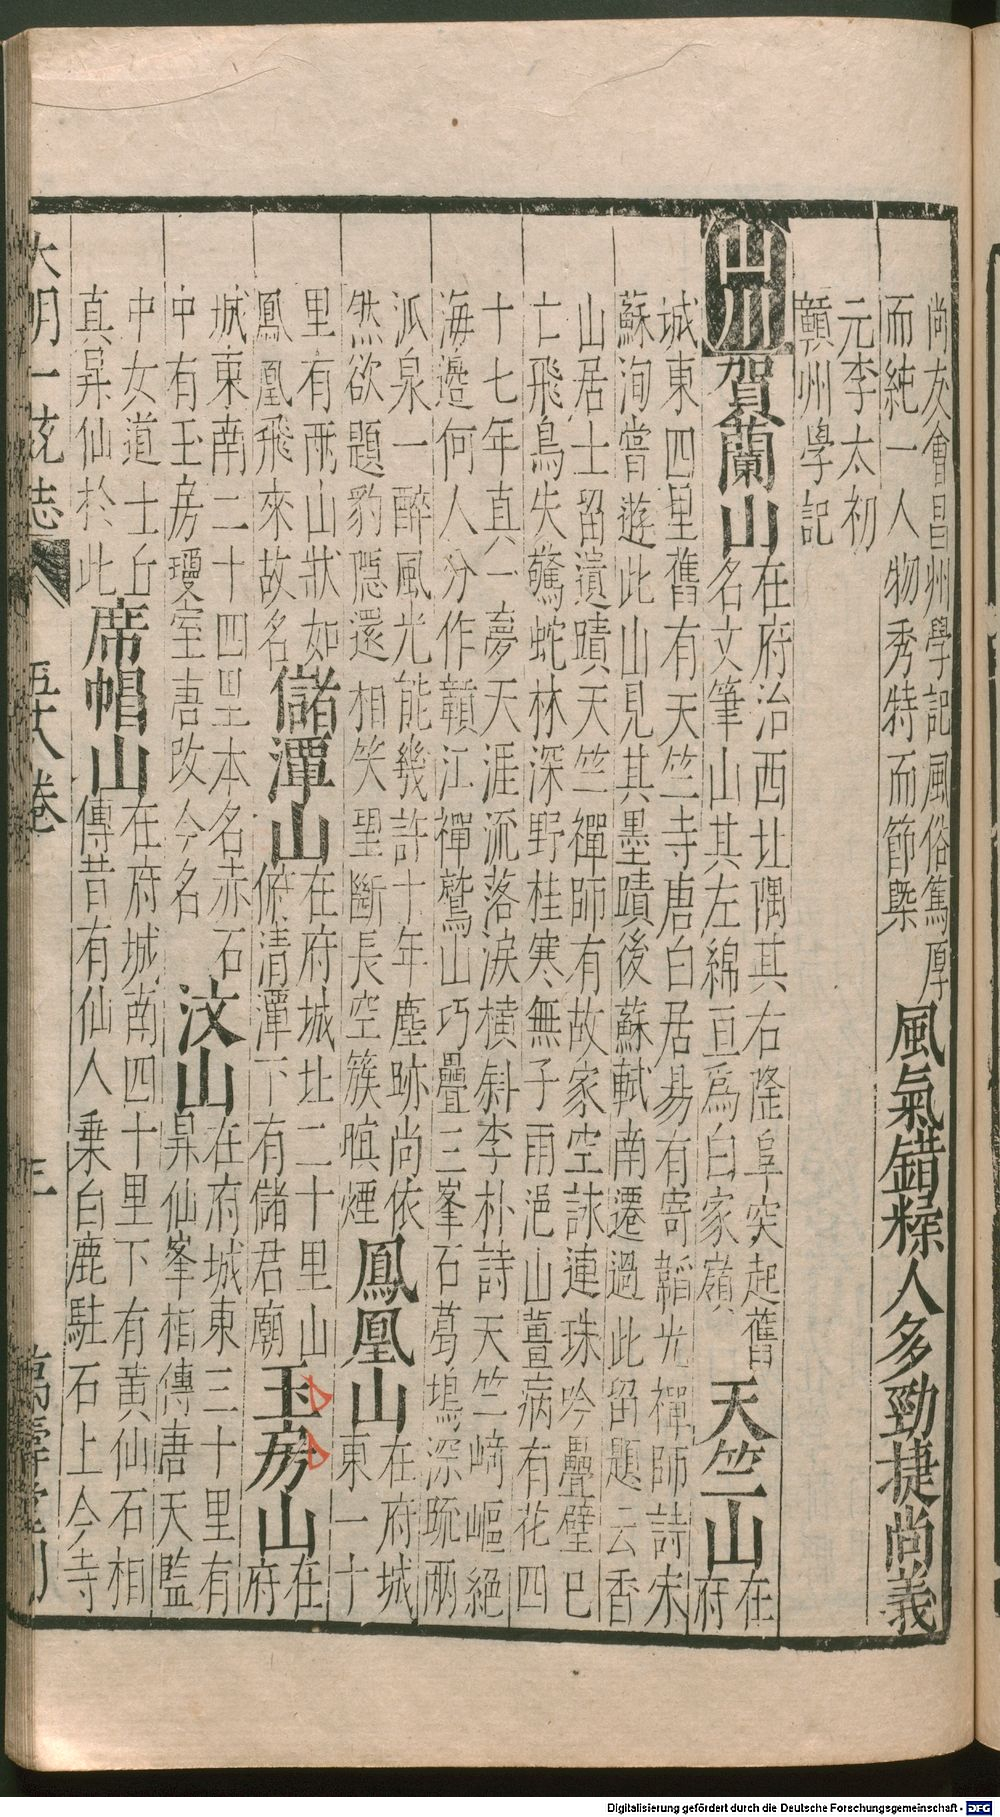 尚友會昌州學記風俗篤厚
而純一人物秀特而節槩
風氣錯糅人多勁捷尚義
元李太初
贛州學記
山川
賀蘭山
在府治西北隅其右隆阜突起舊
名文筆山其左綿亘爲白家嶺
天竺山
在
府
城東四里舊有天竺寺唐白居易有寄韜光禪師詩宋
蘇洵嘗遊此山見其墨蹟後蘇軾南遷過此留題云香
山居士留遺蹟天竺禪師有故家空詠連珠吟疊璧已
亡飛鳥失驚蛇林深野桂寒無子雨浥山薑病有花四
十七年真一夢天涯流落淚橫斜李朴詩天竺崎嶇絕
海邊何人分作贛江禪鷲山巧疊三峯石葛塢深疏兩
派泉一醉風光能幾許十年塵跡尚依
然欲題豹隱還相笑望斷長空簇暝煙
鳳凰山
在府城
東一十
里有兩山狀如
鳳凰飛來故名
儲潭山
在府城北二十里山
俯清潭下有儲君廟
玉房山
在
府
城東南二十四里本名赤石
中有玉房瓊室唐改今名
汶山
在府城東三十里有
昇仙峯相傳唐天監
中女道士丘
真昇仙於此
席帽山
在府城南四十里下有黃仙石相
傳昔有仙人乗白鹿駐石上今寺
大明一統志
五十八卷
三
萬壽堂刊
Digitalisierung gefördert durch die Deutsche Forschungsgemeinschaft - DFG